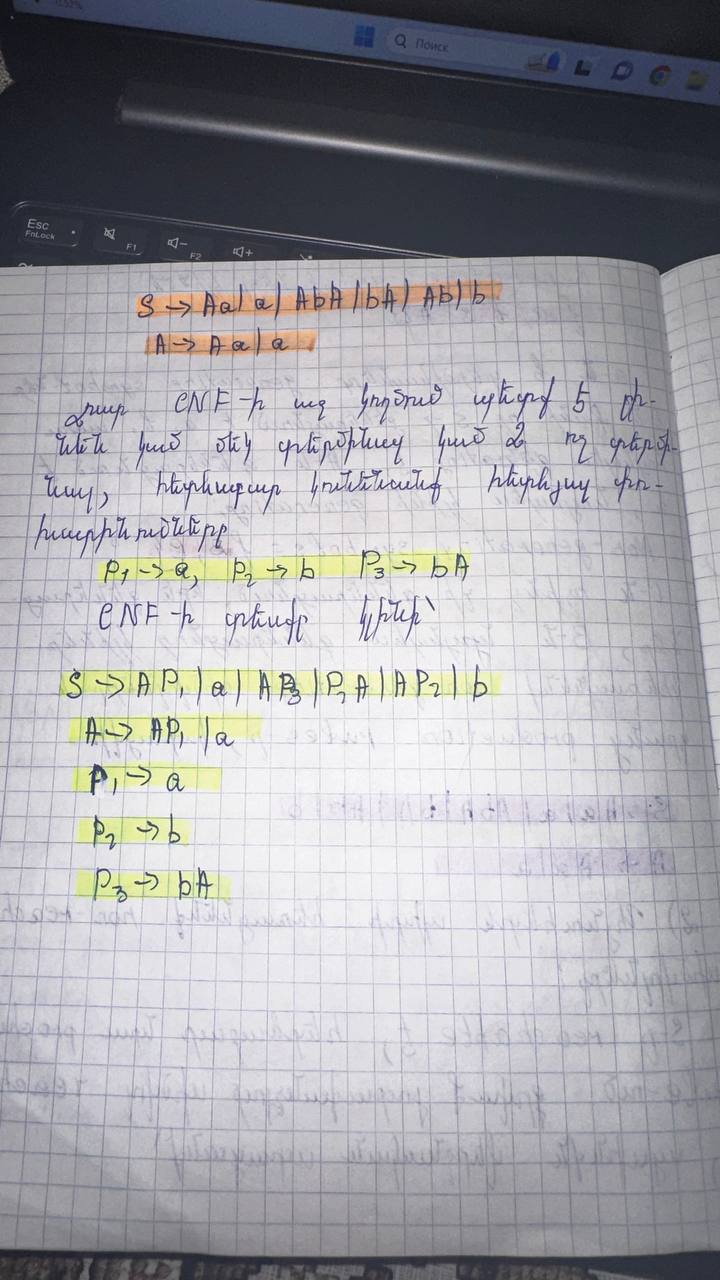 Поиск
Esc
FnLock
F1
F2
S → Aa | a | AbA | bA | Ab | b
A → Aa | a
Քստ CNF-ի աջ կողմում պետք է լի-
նեն կամ մեկ տերմինալ կամ 2 ոչ տերմի-
նալ, հետևաբար կունենանք հետևյալ փո-
խարինումները
P₁ → a, P₂ → b P₃ → bA
CNF-ի տեսքը կլինի՝
S → AP₁ | a | AP₃ | P₂A | AP₂ | b
A → AP₁ | a
P₁ → a
P₂ → b
P₃ → bA